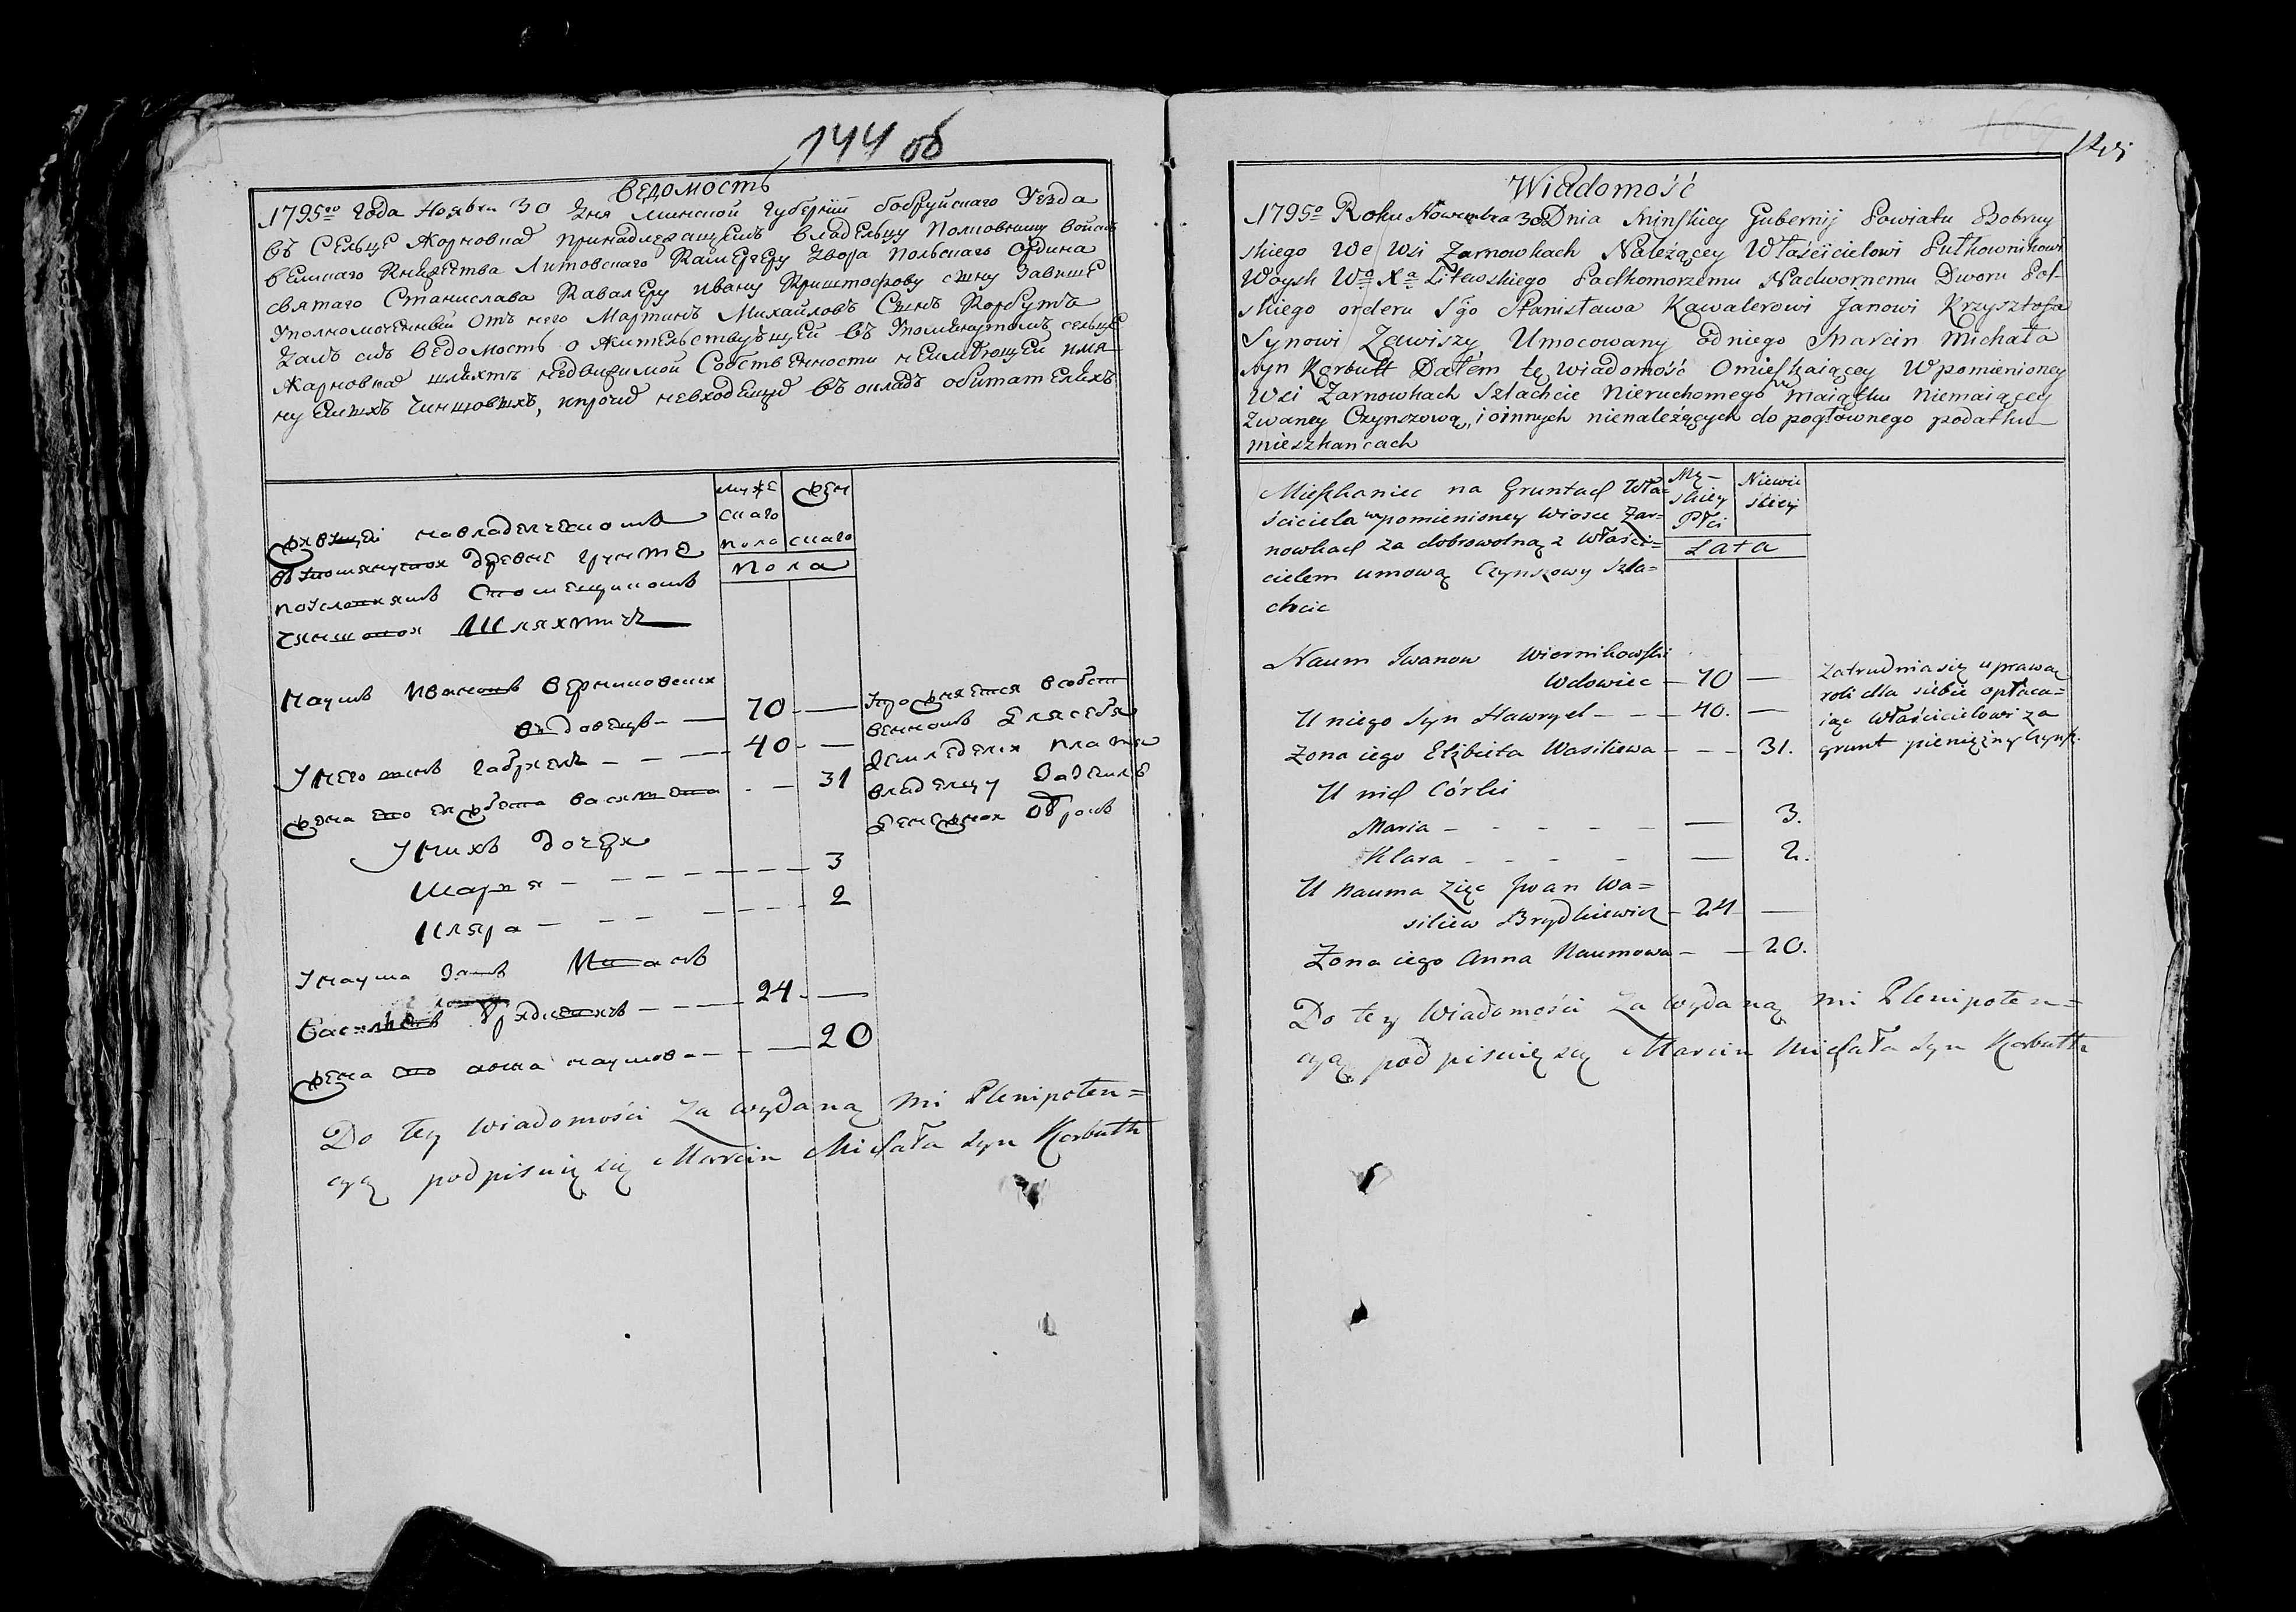 144 об
Ведомость
1795го Года Ноября 30 Дня Минской Губернїи Бобруйскаго Уезда
въ Сельце Жорновках принадлежащемъ владельцу Полковнику войскъ
великаго Княжества Литовскаго Камергеру Двора Польскаго Ордина
святаго Станислава Кавалеру Ивану Криштофову сыну Завише
Уполномоченный отъ него Мартинъ Михайловъ Сынъ Корбутъ
Далъ сию ведомость о жительствующей въ Упомянутомъ сельце
Жарновках шляхте недвижимой Собственности неимеющей имя
нуемыхъ Чиншовыхъ, ипрочих невходящих въ окладъ обитателяхъ
муже ѕкен
скаго
пола скаго
пола
живущїй на владелческомъ
въупомянутой древне грунте
поусловиямъ Спомещикомъ
чиншовой Шляхтичъ
Наумъ Ивановъ Верниковский
вдовецъ - — 70 - —
Унего сынъ Габриель - - - - 40 - —
жена его елжбета васильева - — 31
Унихъ дочери
Мария - - - - - - - 3
Кляра - - - - - - - 2
Унаума зять Иванъ
Васильевъ Бридкевичъ - - - - 24 - —
жена его анна наумова - - - — 20
Упражняется всобст
венномъ Длясебя
Земледелии платя
владелцу Заземлю
Денежной Оброкъ
Do tey wiadomości za wydaną mi Plenipoten=
cyą podpisuię się Marcin Michała syn Korbutt
145
Wiadomość
1795o Roku Nowembra 30 Dnia Minskiey Gubernij Powiatu Bobruy
skiego We Wsi Zarnowkach Należącey Właścicielowi Pułkownikowi
Woysk Wo Xa Litewskiego Podkomorzemu Nadwornemu Dworu Pol-
skiego orderu Sgo Stanisława Kawalerowi Janowi Krzysztofa
Synowi Zawiszy Umocowany od niego Marcin Michała
syn Korbutt Dałem tę wiadomość O mieszkaiącey W pomienioney
Wsi Zarnowkach Szlachcie Nieruchomego Maiątku Niemaiącey
zwaney Czynszową, i o innych nienależących do pogłownego podatku
mieszkańcach
Mieszkaniec na Gruntach Wła=
ściciela wpomienioney Wiosce Żar=
nowkach za dobrowolną z Właści=
cielem umową Czynszowy Szla=
chcic
Mę-
skiey
Płci
Niewie
ściey
Lata
Naum Iwanow Wiernikowski
Wdowiec — 70 —
U niego Syn Hawryel - - - 40. —
Żona iego Elżbieta Wasiliewa - - - 31.
U nich Córki
Maria - - - - - — 3.
Klara - - - - — 2.
U Nauma Zięc Jwan Wa=
siliew Brydkiewicz - 24 —
Żona iego Anna Naumowa - — 20.
Zatrudnia się uprawą
roli dla siebie opłaca=
iąc Właścicielowi za
grunt pieniężny Czynsz.
Do tey Wiadomości za wydaną mi Plenipoten=
cyą podpisuię się Marcin Michała syn Korbutt